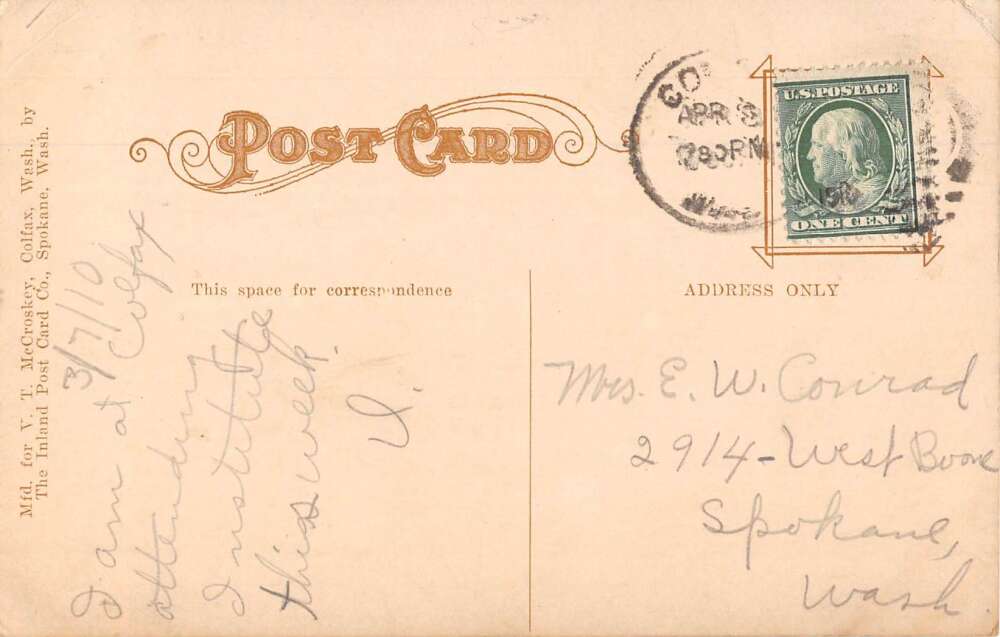 POST CARD
U.S. POSTAGE
ONE CENT
APR
30 PM
This space for correspondence
ADDRESS ONLY
Mfd. for V. T. McCroskey, Colfax, Wash., by
The Inland Post Card Co., Spokane, Wash.
3/7/10
I am at Colfax
attending
Institute
this week.
V.
Mrs. E. W. Conrad
2914 - West Boone
Spokane,
Wash.